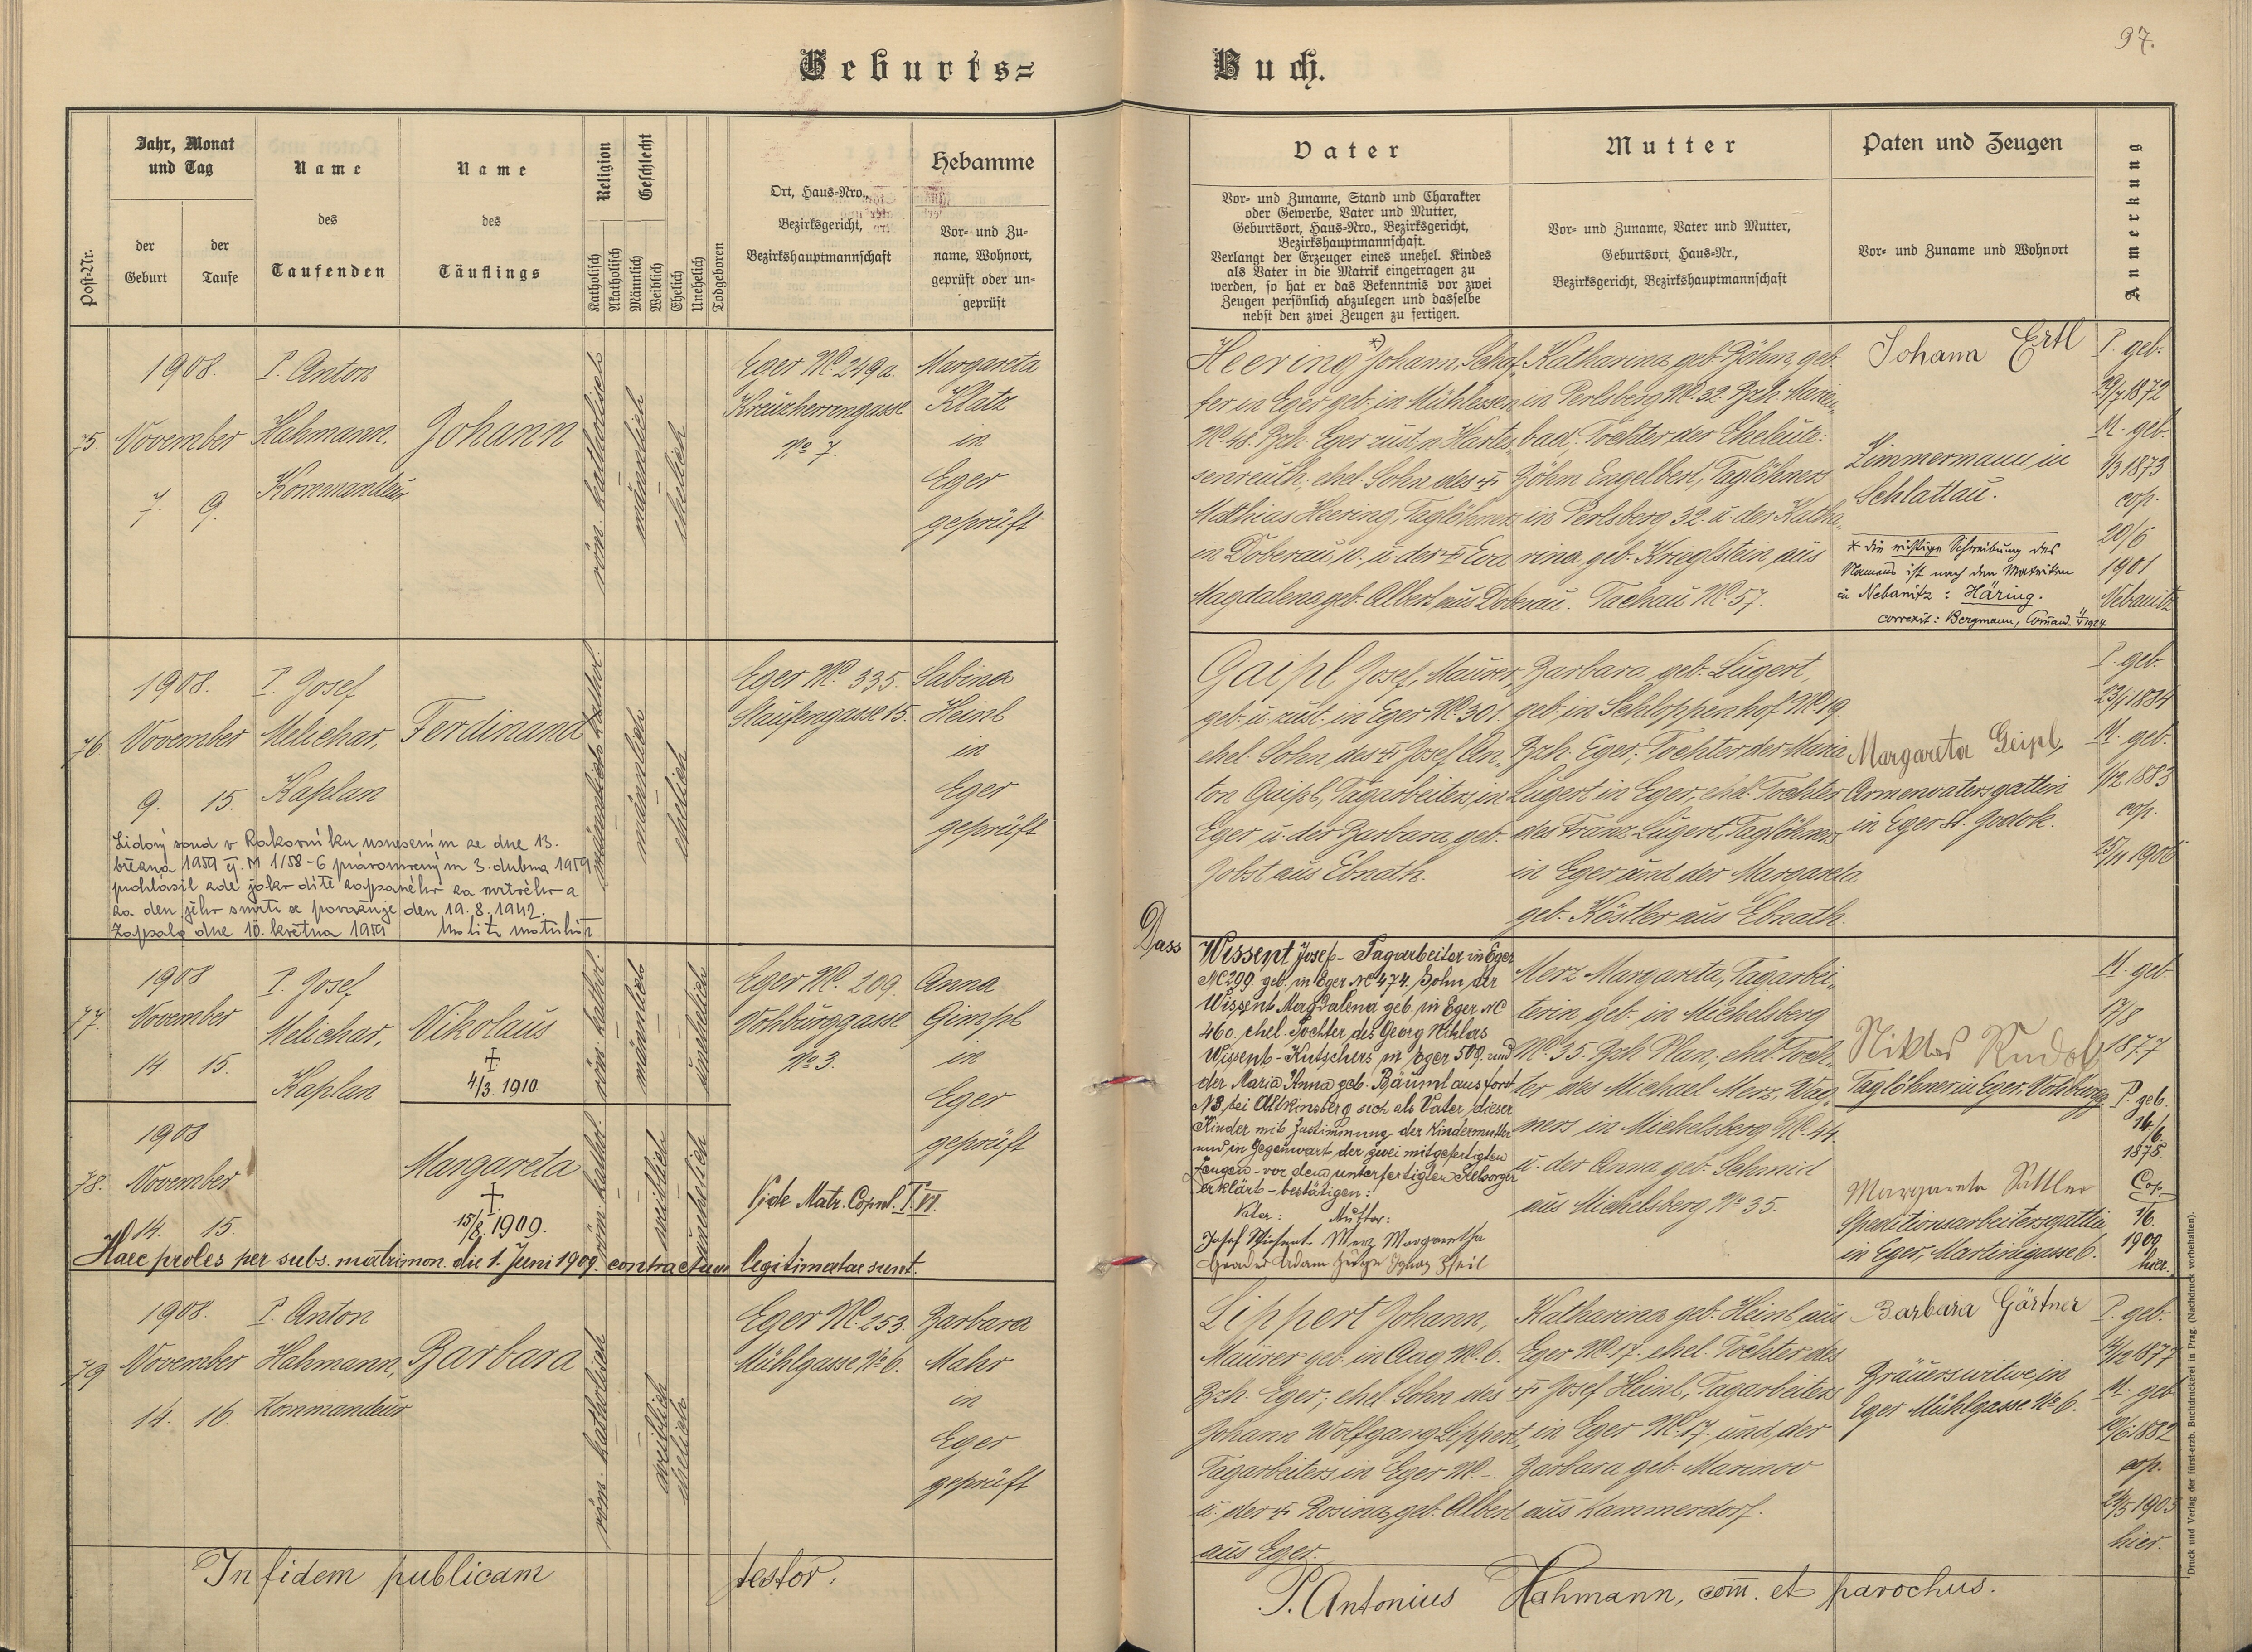 97.
Geburts=Buch.
Post-Nr.
Jahr, Monat
und Tag
der
Geburt
der
Taufe
Name
des
Taufenden
Name
des
Täuflings
Religion
Katholisch
Akatholisch
Geschlecht
Männlich
Weiblich
Ehelich
Unehelich
Todgeboren
Ort, Haus-Nro.,
Bezirksgericht,
Bezirkshauptmannschaft
Hebamme
Vor- und Zu-
name, Wohnort,
geprüft oder un-
geprüft
Vater
Vor- und Zuname, Stand und Charakter
oder Gewerbe, Vater und Mutter,
Geburtsort, Haus-Nro., Bezirksgericht,
Bezirkshauptmannschaft.
Verlangt der Erzeuger eines unehel. Kindes
als Vater in die Matrik eingetragen zu
werden, so hat er das Bekenntnis vor zwei
Zeugen persönlich abzulegen und dasselbe
nebst den zwei Zeugen zu fertigen.
Mutter
Vor- und Zuname, Vater und Mutter,
Geburtsort, Haus-Nr.,
Bezirksgericht, Bezirkshauptmannschaft
Paten und Zeugen
Vor- und Zuname und Wohnort
Anmerkung
75.
1908.
November
7. 9.
P. Anton
Hahmann.
Kommandeur
Johann
röm. katholisch
männlich
ehelich
Eger No. 249a.
Kreuzherrengasse
No 7.
Margareta
Klatz
in
Eger
geprüft
Heering *) Johann, Schaf-
fer in Eger geb. in Mühlessen
No. 48. Bzh. Eger zust. n. Hartes-
senreuth, ehel. Sohn des †
Matthias Heering, Taglöhners
in Doberau, u. der † Eva
Magdalena geb. Albert aus Doberau.
Katharina geb. Böhm, geb.
in Perlsberg No. 32. Bzh. Marien-
bad, Tochter der Eheleute:
Böhm Engelbert, Taglöhners
in Perlsberg 32. u. der Katha-
rina geb. Krieglstein aus
Tachau No. 57.
Johana Ertl
Zimmermann in
Schlattau.
* die richtige Schreibung des
Namens ist nach den Matriken
in Nebanitz: Häring.
correxit: Bergmann, Comand. 1924
P. geb.
29/7 1872
M. geb.
1/3 1873
cop.
20/6
1901
Nebanitz
76
1908.
November
9. 15.
P. Josef
Melichar,
Kaplan
Ferdinand
männlich
ehelich
Eger No. 335.
Staufengasse 15.
Sabina
Heinl
in
Eger
geprüft
Lidový soud v Rakovníku usnesením ze dne 13.
března 1959 čj. M 1/58-6 pravomocným 3. dubna 1959
prohlásil zde jako dítě zapsaného za mrtvého a
za den jeho smrti se považuje den 19.8.1942.
Zapsal dne 10. května 1959
Gaipl Josef, Maurer,
geb. u. zust. in Eger No. 301.
ehel. Sohn des † Josef An-
ton Gaipl, Tagarbeiters, in
Eger u. der Barbara geb.
Jobst aus Ebnath.
Barbara geb. Lugert,
geb. in Schloppenhof No. 19.
Bzh. Eger; Tochter der Maria
Lugert in Eger, ehel. Tochter
des Franz Lugert, Taglöhners
in Eger und der Margareta
geb. Köstler aus Ebnath.
Margareta Geipl,
Armenvatersgattin
in Eger St. Jodok.
P. geb.
23/1 1884
M. geb.
1/12 1883
cop.
25/11 1906
77.
1908
November
14. 15.
P. Josef
Melichar,
Kaplan
Nikolaus
†
4/3. 1910.
röm. kathol.
männlich
unehelich
Eger No. 209.
Vohburggasse
No 3.
Anna
Gimpl
in
Eger
geprüft
78.
1908
November
14. 15.
Margareta
†
15/8. 1909.
röm. kathol.
weiblich
unehelich
Vide Matr. Copul. T. VI.
Haec proles per subs. matrimon. die 1. Juni 1909. contractum legitimatae sunt.
Dass
Wissent Josef - Tagarbeiter in Eger
NC 299 geb. in Eger NC 474, Sohn der
Wissent Magdalena geb. in Eger NC
460, ehel. Tochter des Georg Niklas
Wissent - Kutschers in Eger 509. und
der Maria Anna geb. Bäuml aus
N 3, bei Altkinsberg sich als Vater dieser
Kinder mit Zustimmung der Kindermutter
und in Gegenwart der zwei mitgefertigten
Zeugen - vor dem unterfertigten Seelsorger
erklärt - bestätigen:
Vater: Mutter:
Josef Wissent. Merz Margaretha
Merz Margareta, Tagarbei-
terin geb. in Michelsberg
No 35. Bzh. Plan, ehel. Toch-
ter des Michael Merz, Wag-
ners in Michelsberg No. 44.
u. der Anna geb. Schmid
aus Michelsberg No 35.
Niklas Rudolf
Taglöhner in Eger,
Margareta Sattler
Speditionsarbeitersgattin
in Eger, Martinigasse 6.
M. geb.
17/8
1877
P. geb.
14./6.
1878.
Cop.
1/6.
1909
hier.
79
1908.
November
14. 16.
P. Anton
Hahmann,
Kommandeur
Barbara
röm. katholisch
weiblich
ehelich
Eger No. 253.
Mühlgasse No 6.
Barbara
Mahr
in
Eger
geprüft
Lippert Johann,
Maurer geb. in Aag No. 6.
Bzh. Eger; ehel. Sohn des †
Johann Wolfgang Lippert,
Tagarbeiters in Eger No. -.
u. der † Rosina, geb. Albert
aus Eger.
Katharina geb. Heinl, aus
Eger No. 17. ehel. Tochter des
Josef Heinl, Tagarbeiters
in Eger No. 17. und der
Barbara geb. Marinov
aus Kammerdorf.
Barbara Gärtner
Bräuerswitwe, in
Eger Mühlgasse No 6.
P. geb.
14/12 1877
M. geb.
19/6. 1882
cop.
24/5 1903
hier.
In fidem publicam testor.
P. Antonius Hahmann, com. et parochus.
Druck und Verlag der fürst-erzb. Buchdruckerei in Prag. (Nachdruck vorbehalten).